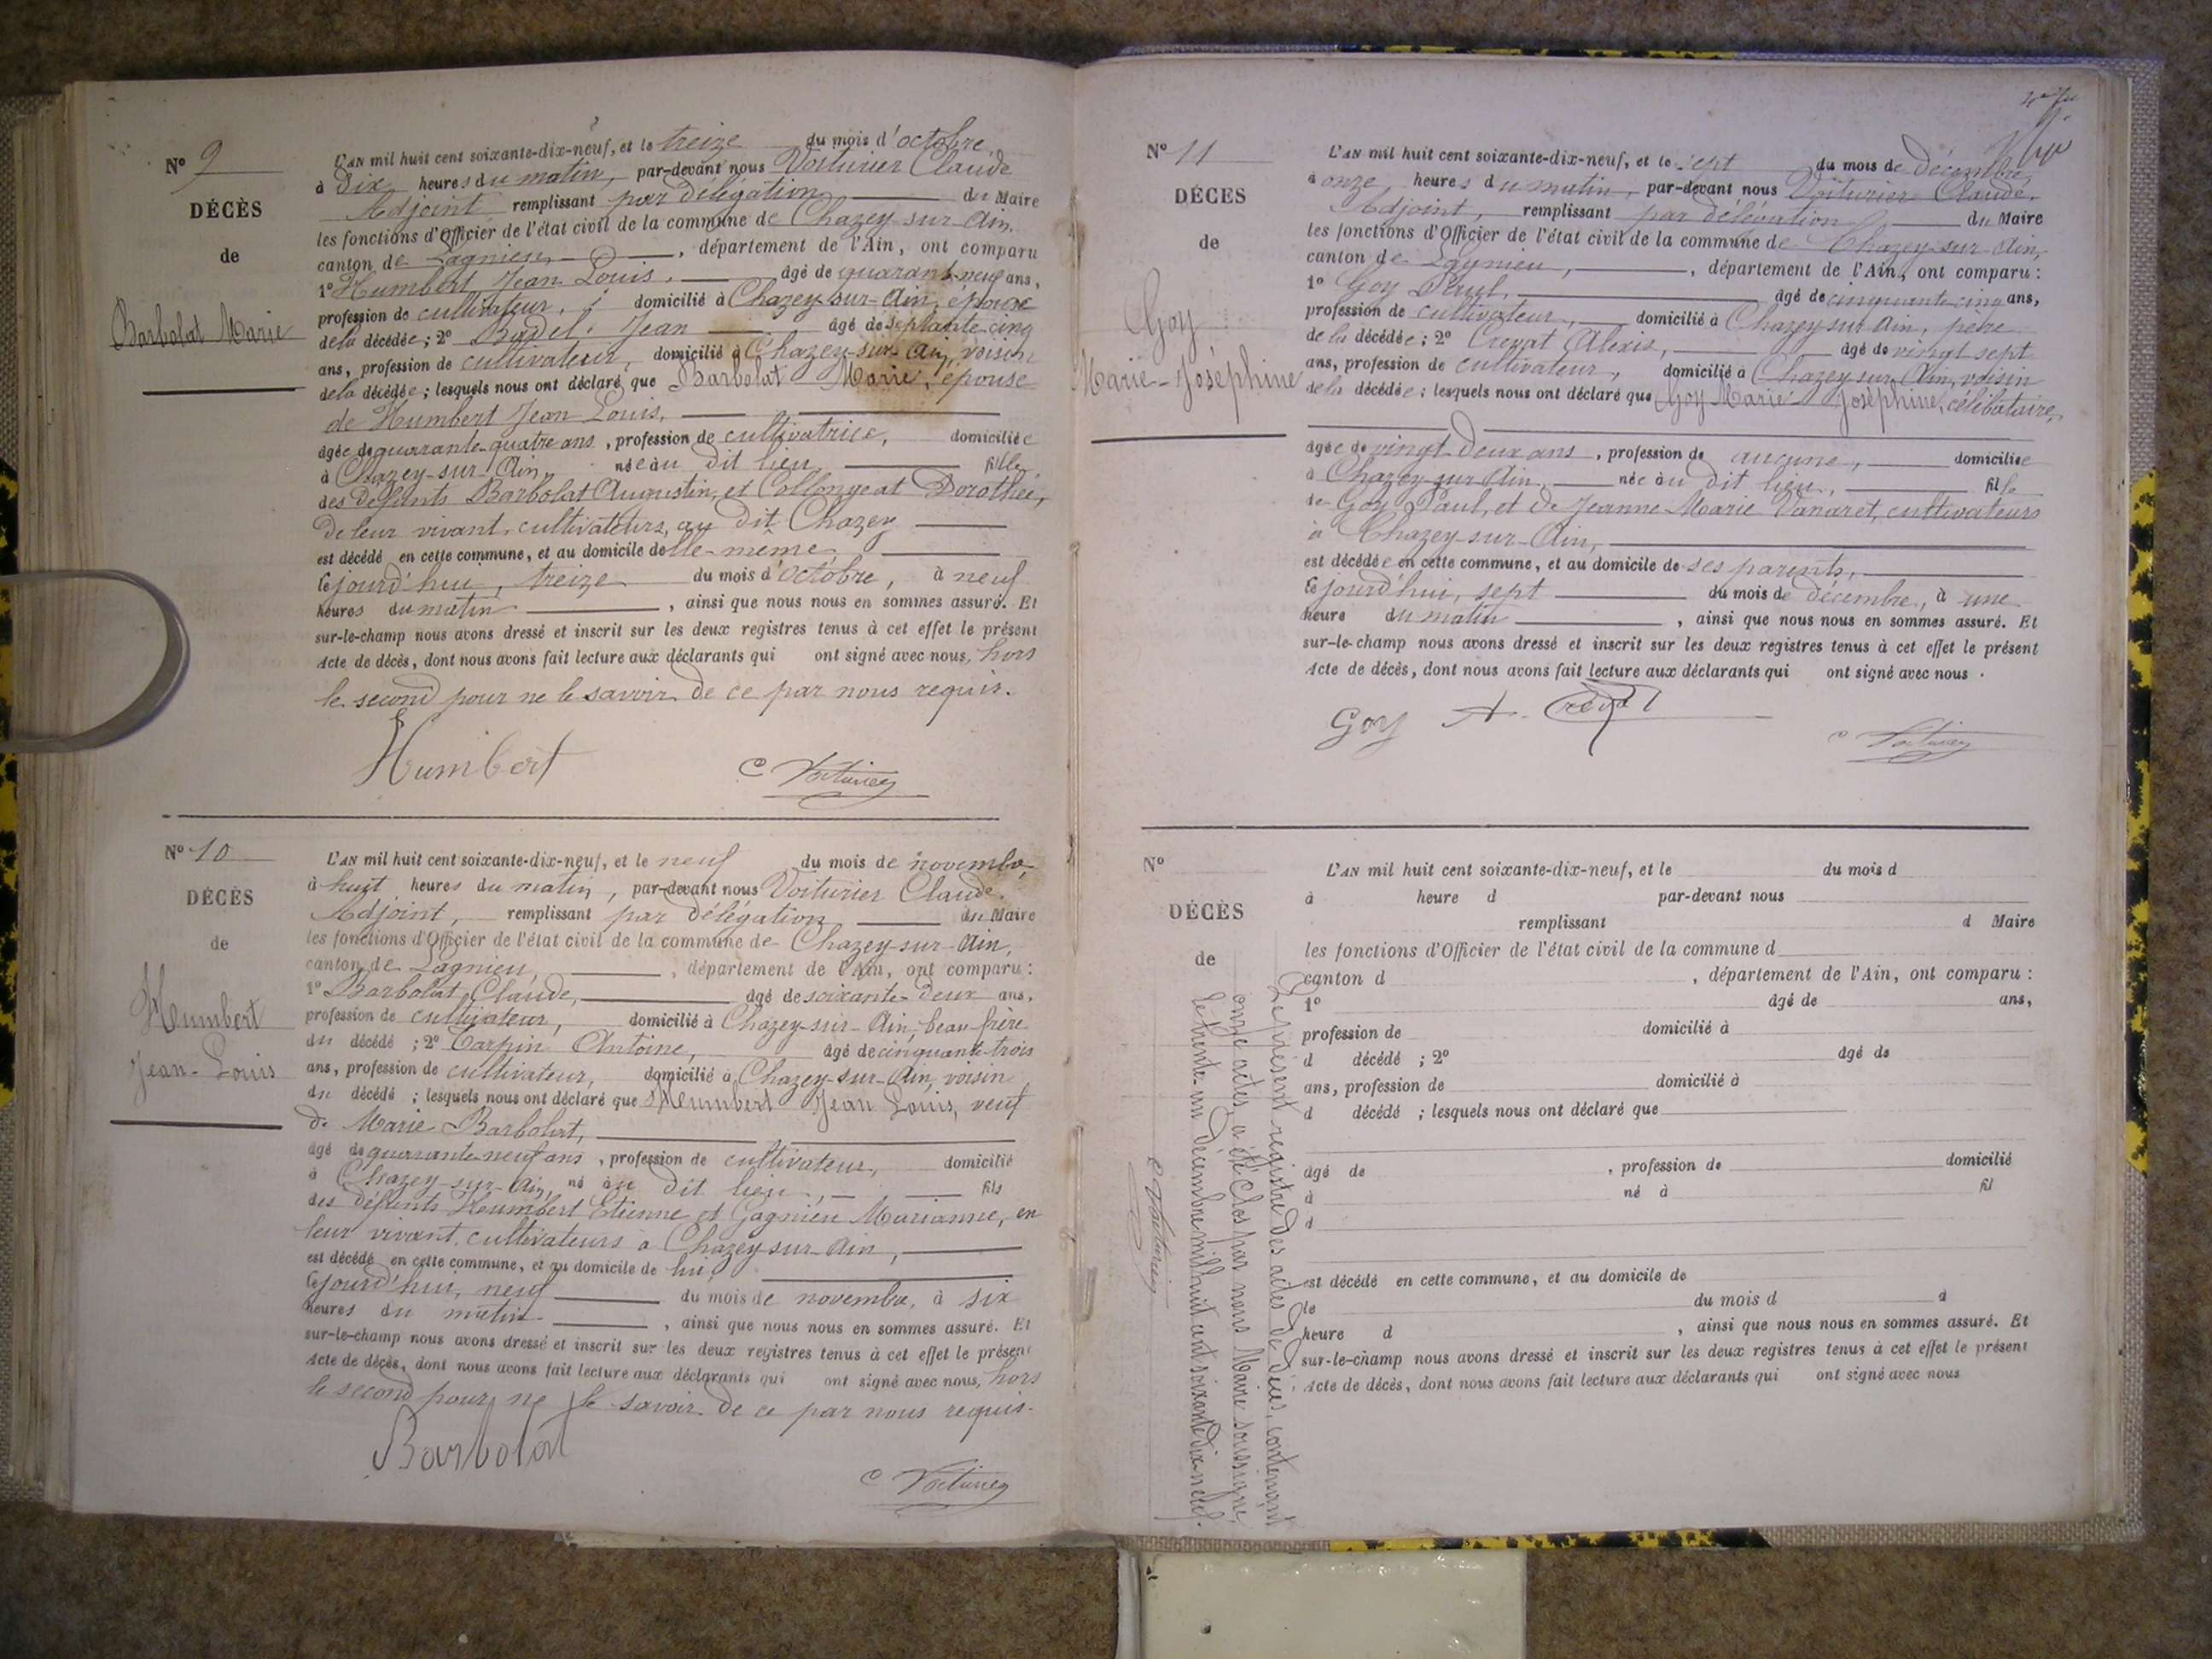 N° 9
DÉCÈS
de
Barbolat Marie
L'AN mil huit cent soixante-dix-neuf, et le treize du mois d'octobre,
à dix heures du matin, par-devant nous Voiturier Claude
Adjoint remplissant par délégation du Maire
les fonctions d'Officier de l'état civil de la commune de Chazey-sur-Ain.
canton de Lagnieu, département de l'Ain, ont comparu
1° Humbert Jean Louis, âgé de quarante-neuf ans,
profession de cultivateur, domicilié à Chazey-sur-Ain, époux
de la décédée; 2° Badel Jean âgé de septante cinq
ans, profession de cultivateur, domicilié à Chazey-sur-Ain, voisin
de la décédée; lesquels nous ont déclaré que Barbolat Marie, épouse
de Humbert Jean Louis,
âgée de quarante-quatre ans, profession de cultivatrice, domiciliée
à Chazey-sur-Ain, née au dit lieu, fille
des défunts Barbolat Augustin, et Collongeat Dorothée,
de leur vivant, cultivateurs, au dit Chazey
est décédé en cette commune, et au domicile d'elle-même
cejourd'hui, treize du mois d'octobre, à neuf
heures du matin, ainsi que nous nous en sommes assuré. Et
sur-le-champ nous avons dressé et inscrit sur les deux registres tenus à cet effet le présent
Acte de décès, dont nous avons fait lecture aux déclarants qui ont signé avec nous, hors
le second pour ne le savoir de ce par nous requis.
Humbert C Voiturier
N° 10
DÉCÈS
de
Humbert
Jean-Louis
L'AN mil huit cent soixante-dix-neuf, et le neuf du mois de novembre,
à huit heures du matin, par-devant nous Voiturier Claude.
Adjoint, remplissant par délégation du Maire
les fonctions d'Officier de l'état civil de la commune de Chazey-sur-Ain,
canton de Lagnieu, département de l'Ain, ont comparu:
1° Barbolat Claude, âgé de soixante-deux ans,
profession de cultivateur, domicilié à Chazey-sur-Ain, beau frère
du décédé; 2° Carpin Antoine, âgé de cinquante-trois
ans, profession de cultivateur, domicilié à Chazey-sur-Ain, voisin
du décédé; lesquels nous ont déclaré que Humbert Jean Louis, veuf
de Marie Barbolat,
âgé de quarante-neuf ans, profession de cultivateur, domicilié
à Chazey-sur-Ain, né au dit lieu, fils
des défunts Humbert Etienne et Gagnieu Marianne, en
leur vivant, cultivateurs à Chazey-sur-Ain,
est décédé en cette commune, et au domicile de lui,
cejourd'hui, neuf du mois de novembre, à six
heures du matin, ainsi que nous nous en sommes assuré. Et
sur-le-champ nous avons dressé et inscrit sur les deux registres tenus à cet effet le présent
Acte de décès, dont nous avons fait lecture aux déclarants qui ont signé avec nous, hors
le second pour ne le savoir de ce par nous requis.
Barbolat
C Voiturier
N° 11
DÉCÈS
de
Goy
Marie-Joséphine
L'AN mil huit cent soixante-dix-neuf, et le sept du mois de décembre,
à onze, heures du matin, par-devant nous Voiturier Claude.
Adjoint, remplissant par délégation du Maire
les fonctions d'Officier de l'état civil de la commune de Chazey-sur-Ain,
canton de Lagnieu, département de l'Ain, ont comparu:
1° Goy Paul, âgé de cinquante-cinq ans,
profession de cultivateur, domicilié à Chazey sur Ain, père
de la décédée; 2° Crevat Alexis, âgé de vingt sept
ans, profession de cultivateur, domicilié à Chazey sur Ain, voisin
de la décédée; lesquels nous ont déclaré que Goy Marie Joséphine, célibataire,
âgée de vingt-deux ans, profession de aucune, domiciliée
à Chazey-sur-Ain, née au dit lieu, fille
de Goy Paul, et de Jeanne-Marie Vanaret, cultivateurs
à Chazey-sur-Ain,
est décédée en cette commune, et au domicile de ses parents,
cejourd'hui, sept du mois de décembre, à une
heure du matin, ainsi que nous nous en sommes assuré. Et
sur-le-champ nous avons dressé et inscrit sur les deux registres tenus à cet effet le présent
Acte de décès, dont nous avons fait lecture aux déclarants qui ont signé avec nous.
Goy A. Crevat
C Voiturier
N°
DÉCÈS
de
L'AN mil huit cent soixante-dix-neuf, et le du mois d
à heure d par-devant nous
remplissant d Maire
les fonctions d'Officier de l'état civil de la commune d
canton d, département de l'Ain, ont comparu:
1° âgé de ans,
profession de domicilié à
d décédé; 2° âgé de
ans, profession de domicilié à
d décédé; lesquels nous ont déclaré que
âgé de, profession de domicilié
à né à fil
d
est décédé en cette commune, et au domicile de
le du mois d à
heure d, ainsi que nous nous en sommes assuré. Et
sur-le-champ nous avons dressé et inscrit sur les deux registres tenus à cet effet le présent
Acte de décès, dont nous avons fait lecture aux déclarants qui ont signé avec nous
Le présent registre des actes de décès, contenant
onze actes, a été clos par nous Maire soussigné,
le trente-un décembre mil huit cent soixante dix-neuf.
C Voiturier